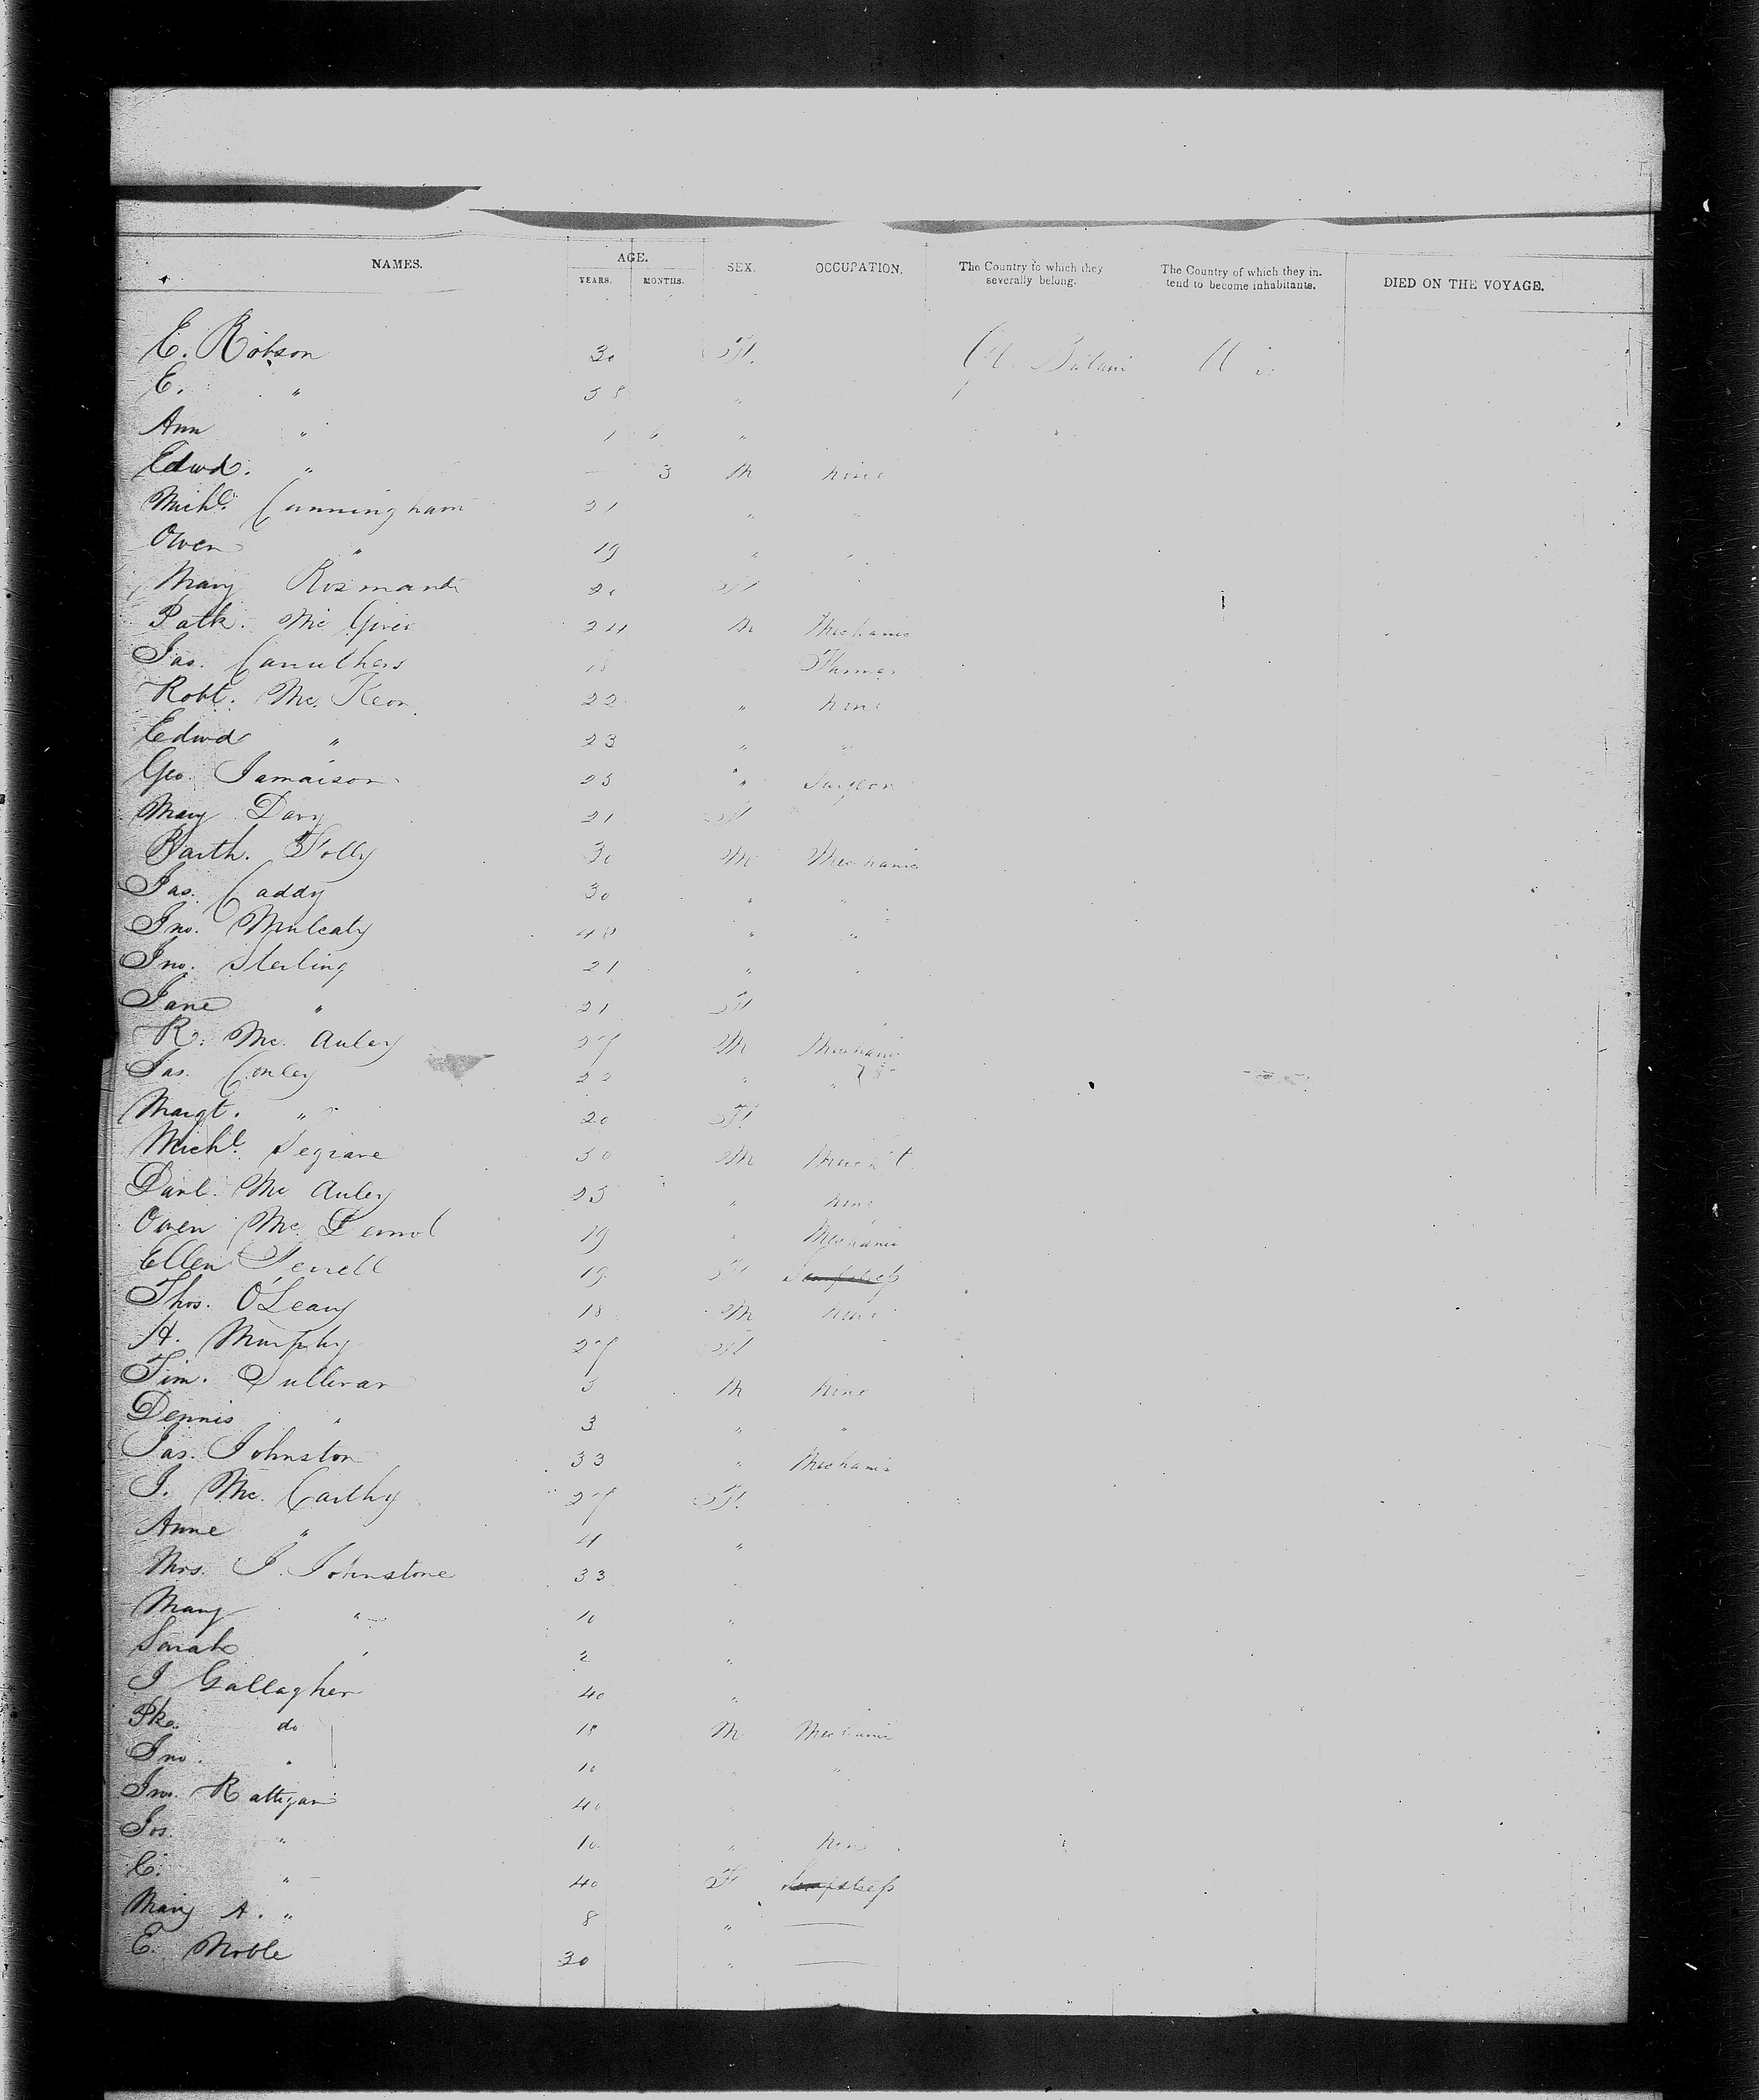 NAMES. AGE. SEX. OCCUPATION. The Country to which they severally belong. The Country of which they in- tend to become inhabitants. DIED ON THE VOYAGE.
YEARS. MONTHS.
E. Robson 30 F. Gt. Britain U
E. " 38 "
Ann " 1 6 "
Edwd. " — 3 M none
Michl. Cunningham 21 " "
Owen " 19 " "
Mary 20 F
Patk. Mc 24 M Mechanic
Jas. Carruthers 18 " Farmer
Robt. Mc. Keon 22 " none
Edwd " 23 " "
Geo. Jamaison 25 " Surgeon
Mary Davy 21 F
Barth. Folly 30 M Mechanic
Jas. Caddy 30 " "
Jno. Mulcaty 40 " "
Jno. Sterling 21 " "
Jane " 21 F
R. Mc. Auley 27 M Mechanic
Jas. Conley 22 " "
Margt. " 20 F.
Michl. Segrave 30 M Merch't.
Danl. Mc Auley 25 " none
Owen Mc. 19 " Mechanic
Ellen 19 F Sempstress
Thos. O'Leary 18 M none
A. Murphy 27 F
Tim. Sullivan 5 M none
Dennis " 3 " "
Jas. Johnston 33 " Mechanic
J. Mc. Carthy 27 F.
Anne " 4 "
Mrs. J. Johnstone 33 "
Mary " 10 "
Sarah " 2 "
J Gallagher 40 "
Pk. do 18 M Mechanic
Jno. " 10 " "
Jno. Rattigan 40
Jos. " 10 " none
C. " 40 F Sempstress
Mary A. " 8 " —
E. Noble 30 " —